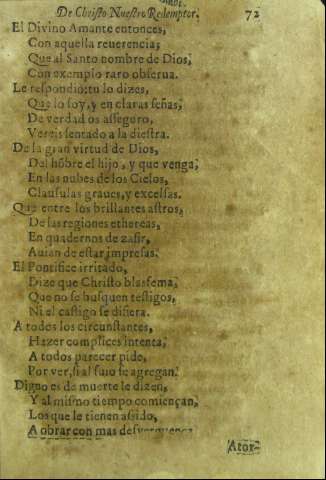 De Christo Nuestro Redemptor. 72
El Divino Amante entonces,
Con aquella reuerencia;
Que al Santo nombre de Dios,
Con exemplo raro obserua.
Le respondio: tu lo dizes,
Que lo soy, y en claras señas,
De verdad os asseguro,
Vereis sentado a la diestra.
De la gran virtud de Dios,
Del hõbre el hijo, y que venga,
En las nubes de los Cielos,
Clausulas graues, y excelsas.
Que entre los brillantes astros,
De las regiones ethereas,
En quadernos de zafir,
Auian de estar impresas.
El Pontifice irritado,
Dize que Christo blasfema,
Que no se busquen testigos,
Ni el castigo se difiera.
A todos los circunstantes,
Hazer complices intenta,
A todos parecer pide,
Por ver, si al suio se agregan.
Digno es de muerte le dizen,
Y al mismo tiempo comiençan,
Los que le tienen assido,
A obrar con mas desverguença
Ator-